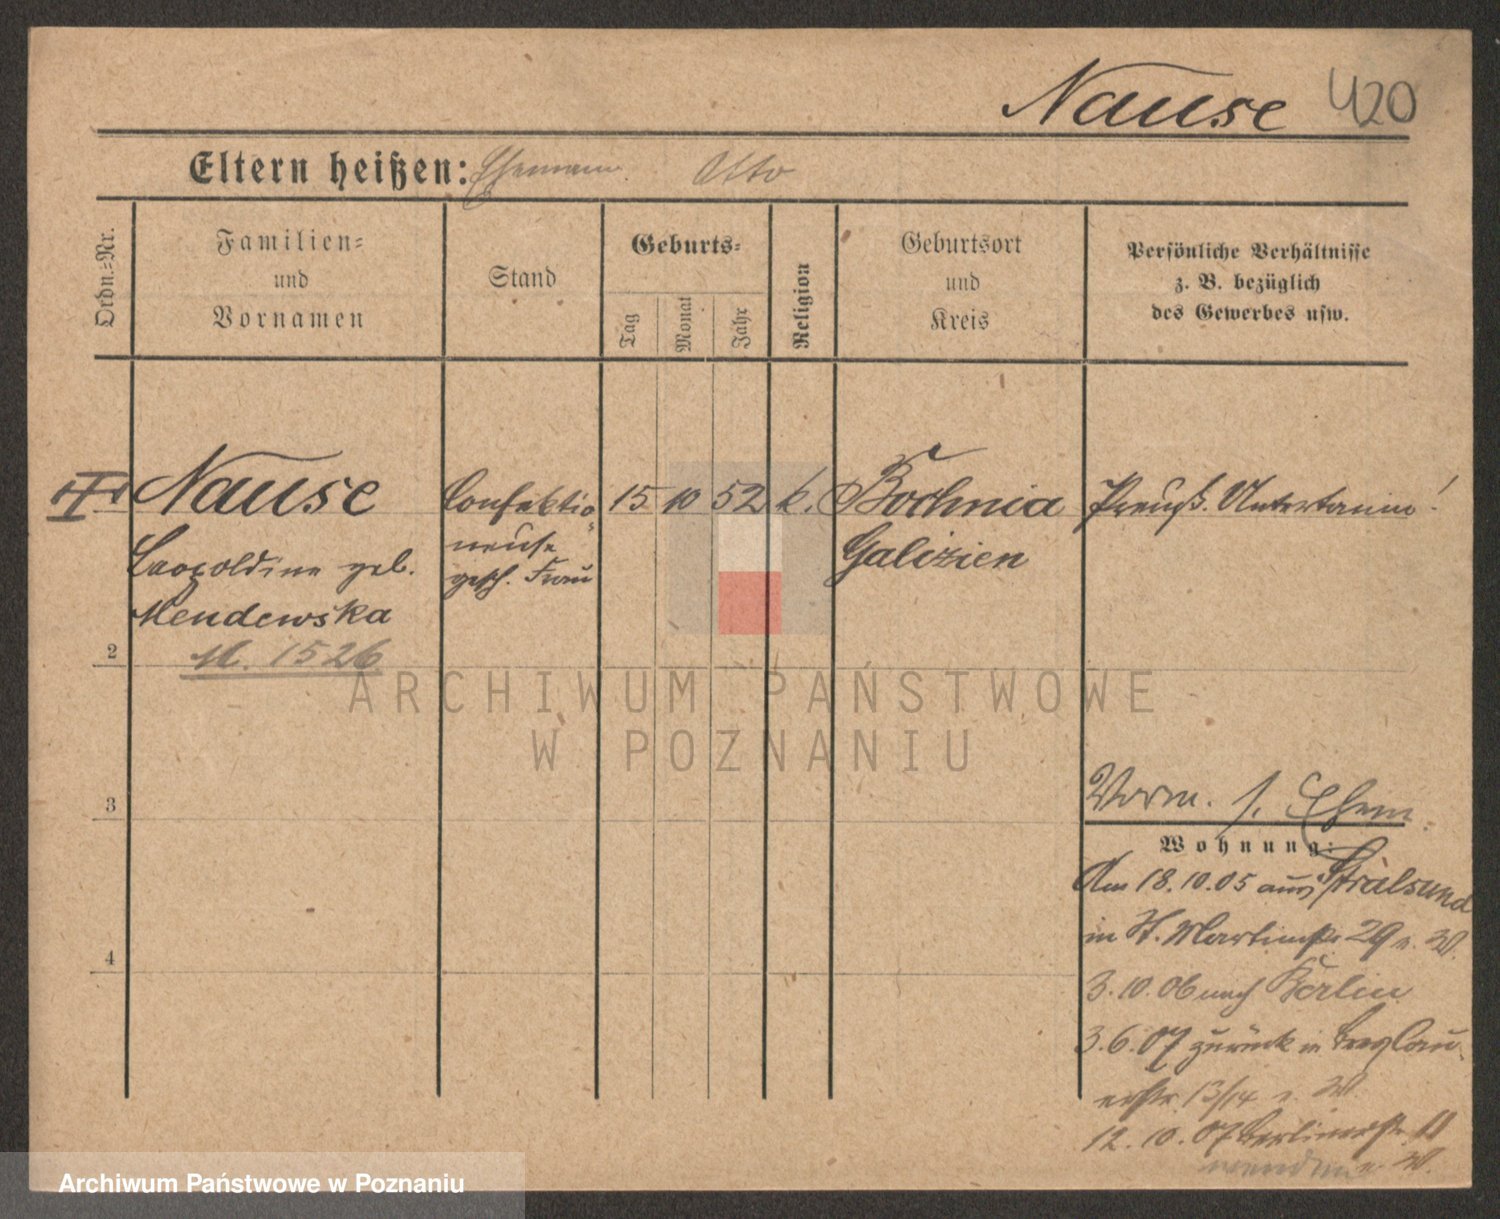 Nause 420
Eltern heißen: Ehemann Otto
Ordn.=Nr.
Familien=
und
Vornamen
Stand
Geburts=
Tag
Monat
Jahr
Religion
Geburtsort
und
Kreis
Persönliche Verhältnisse
z. B. bezüglich
des Gewerbes usw.
Nause
Leopoldine geb.
Mendewska
M. 1526
Confektio
neuse
gesch. Frau
15 10 52 k.
Bochnia
Galizien
Preuß. Untertanin!
2
3
4
Vorm. s. Ehem.
Wohnung:
Am 18.10.05 aus Stralsund
in St. Martinstr 29 e. W.
3.10.06 nach Berlin
3.6.07 zurück in Breslau
erstr. 13/14 e. W.
12.10.07 Berlinerstr 11
e. W.
ARCHIWUM PAŃSTWOWE
W POZNANIU
Archiwum Państwowe w Poznaniu